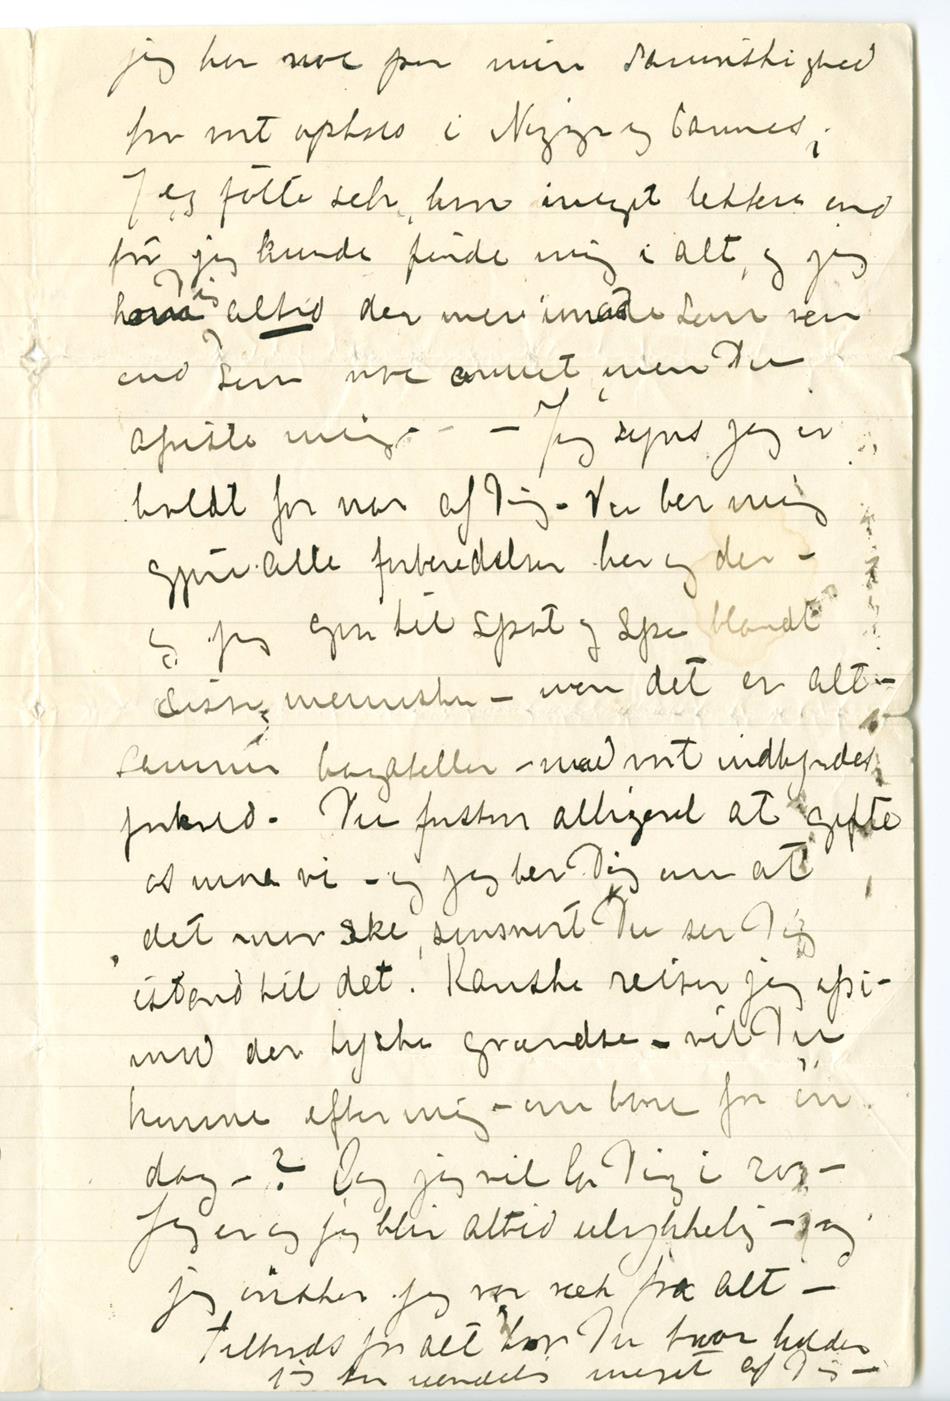 jeg har nok par min samvittighed
for vort ophold i Nizza og Cannes,
Jeg følte selv, hvor meget lettere end
før jeg kunde finde mig i alt, og jeg
altid der mere som ven
end som noe annet men Du
mig – – – Jeg synes jeg er
holdt for nar af Dig – Du ber mig
gjøre alle forberedelser her og der –
og jeg gør til spot og spe blandt
disse mennesker – men det er alt-
sammen bagateller – mod vort indbyrdes
forhold. Du forstår alligevel at gifte
os må vi – og jeg ber Dig om at
det må ske, såsnart Du ser Dig
istand til det. Kanske reiser jeg op i-
mod den tyske grændse – vil Du
komme efter mig – om bare for én
dag –? Og jeg vil la Dig i ro –
Jeg er og jeg blir altid ulykkelig – og
jeg ønsker jeg var væk fra alt –
Tiltrods for alt Du hvor
jeg meget af Dig –